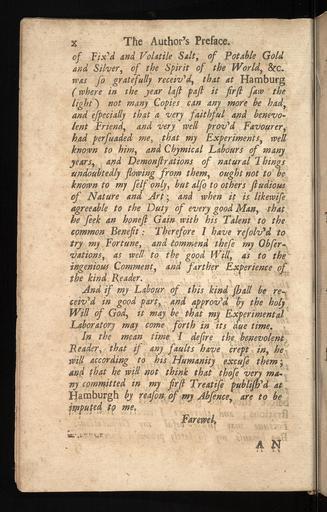 x The Author's Preface.
of Fix'd and Volatile Salt, of Potable Gold
and Silver, of the Spirit of the World, &c.
was ſo gratefully receiv'd, that at Hamburg
(where in the year laſt paſt it firſt ſaw the
light) not many Copies can any more be had,
and eſpecially that a very faithful and benevo-
lent Friend, and very well prov'd Favourer,
had perſuaded me, that my Experiments, well
known to him, and Chymical Labours of many
years, and Demonſtrations of natural Things
undoubtedly flowing from them, ought not to be
known to my ſelf only, but alſo to others ſtudious
of Nature and Art; and when it is likewiſe
agreeable to the Duty of every good Man, that
he ſeek an honeſt Gain with his Talent to the
common Benefit: Therefore I have reſolv'd to
try my Fortune, and commend theſe my Obſer-
vations, as well to the good Will, as to the
ingenious Comment, and farther Experience of
the kind Reader.
And if my Labour of this kind ſhall be re-
ceiv'd in good part, and approv'd by the holy
Will of God, it may be that my Experimental
Laboratory may come forth in its due time.
In the mean time I deſire the benevolent
Reader, that if any faults have crept in, he
will according to his Humanity excuſe them;
and that he will not think that thoſe very ma-
ny committed in my firſt Treatiſe publiſh'd at
Hamburgh by reaſon of my Abſence, are to be
imputed to me.
Farewel,
A N